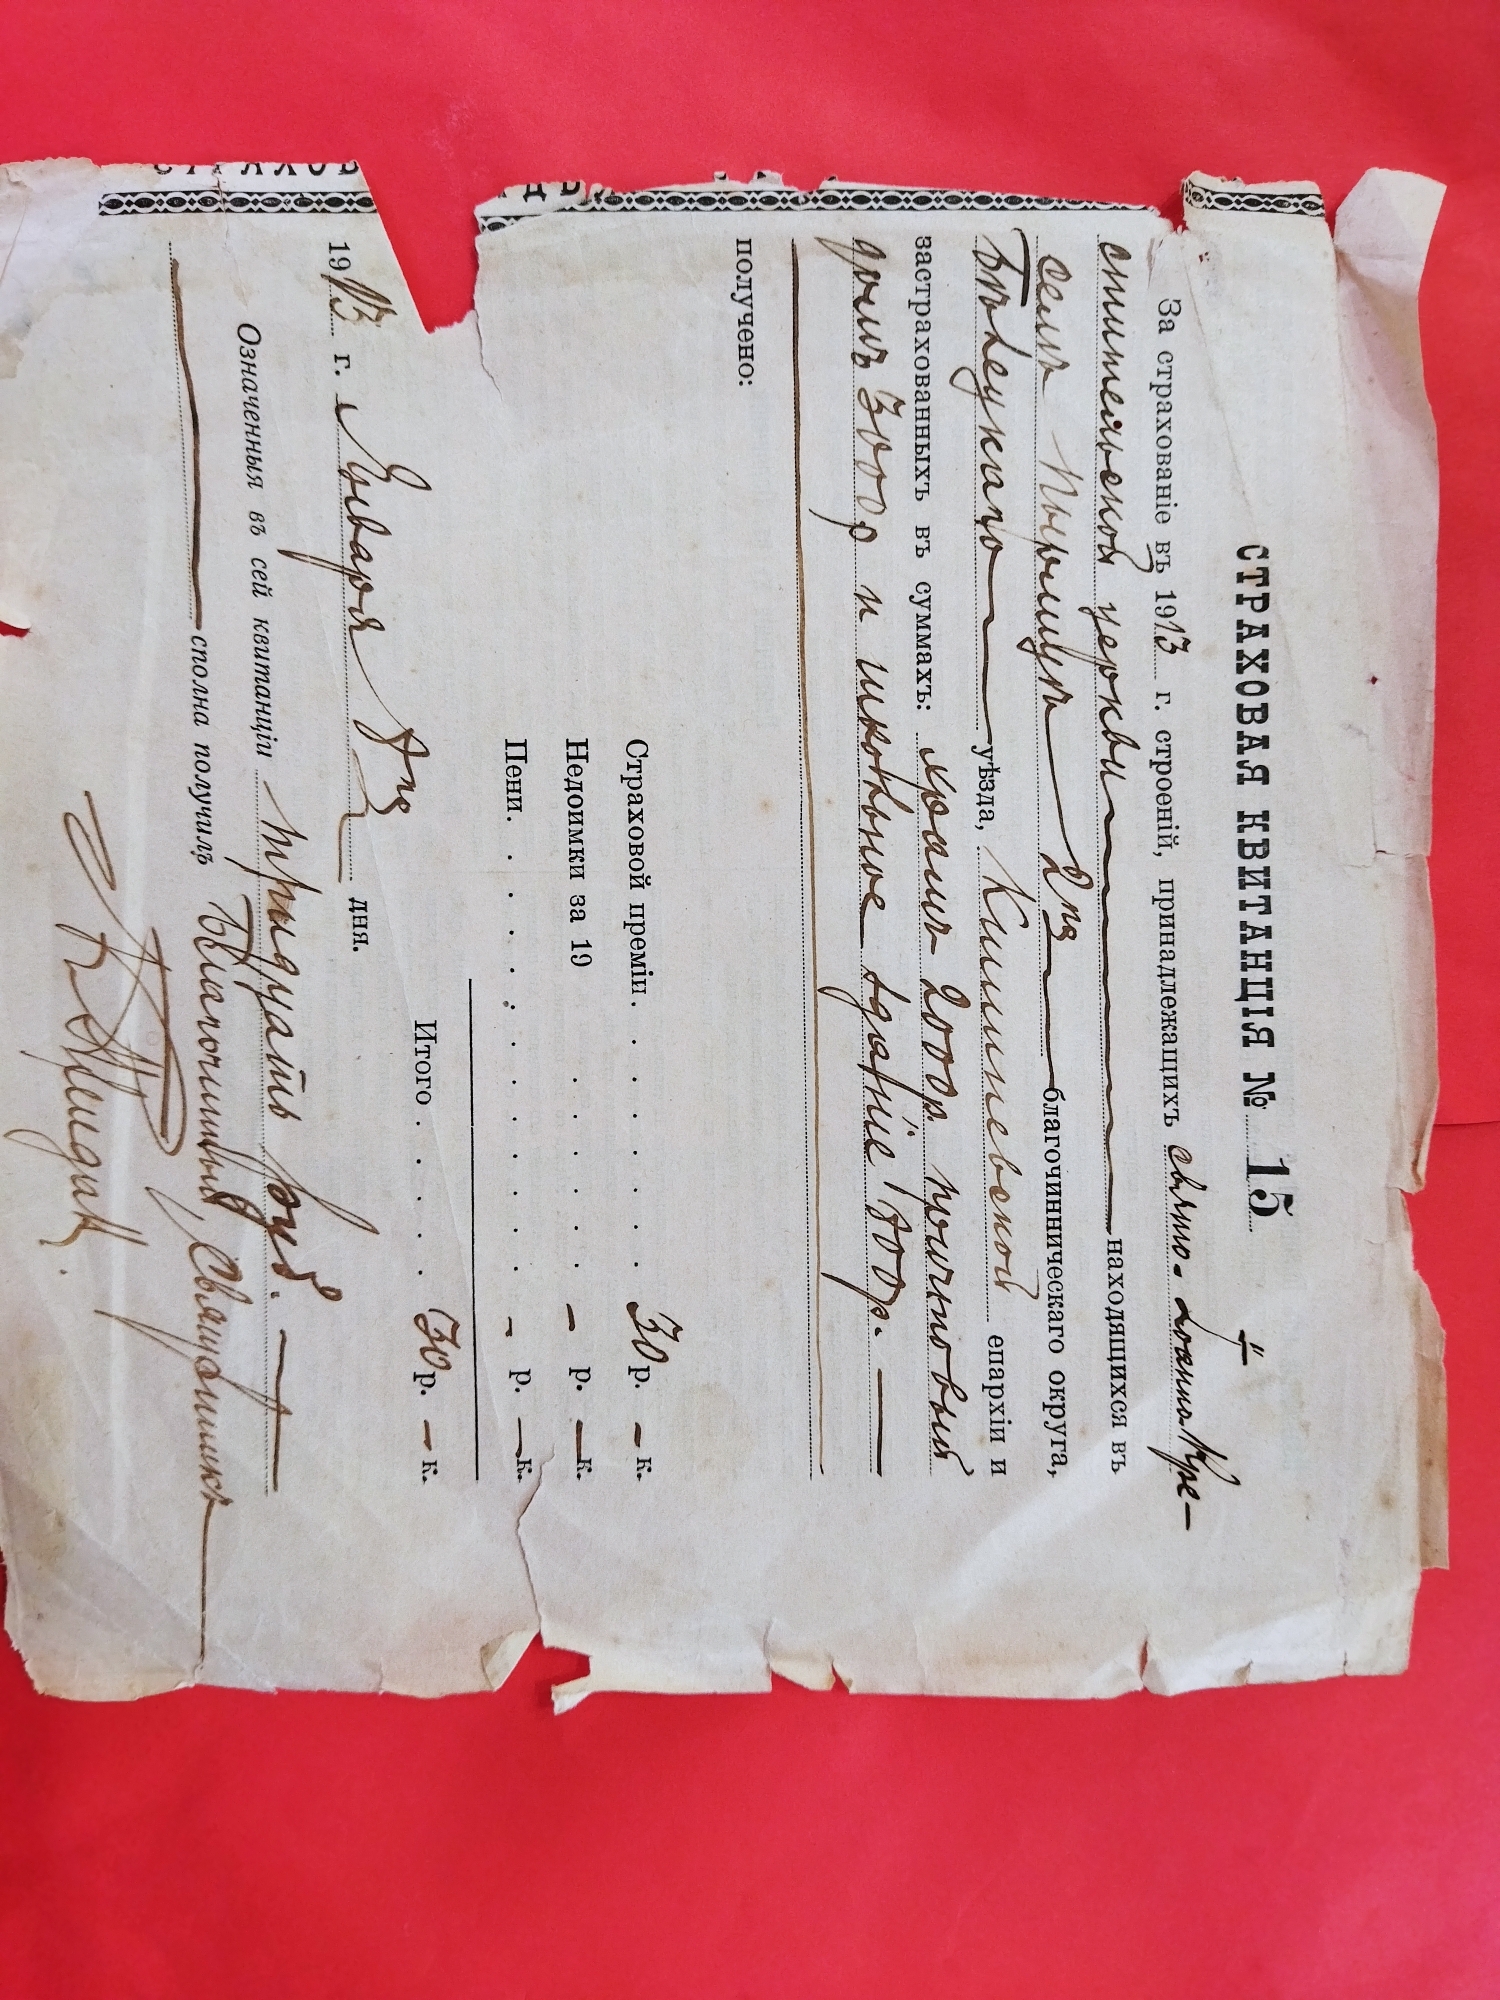 СТРАХОВАЯ КВИТАНЦІЯ № 15
За страхованіе въ 1913 г. строеній, принадлежащихъ свято-Іоанно Кре-
стительской церкви находящихся въ
селѣ Пырлицѣ 2го благочинническаго округа,
Бѣлецкаго уѣзда, Кишиневской епархіи и
застрахованныхъ въ суммахъ: храмъ 2000р. причтовый
домъ 3000р и школьное зданіе
получено:
Страховой преміи . . . . . . 30 р. – к.
Недоимки за 19 . . . . – р. – к.
Пени . . . . . . . . . – р. – к.
Итого . . . . . 30 р. – к.
1913 г. Января 8го дня.
Означенныя въ сей квитанціи тридцать руб. —
сполна получилъ Благочинный, Священникъ